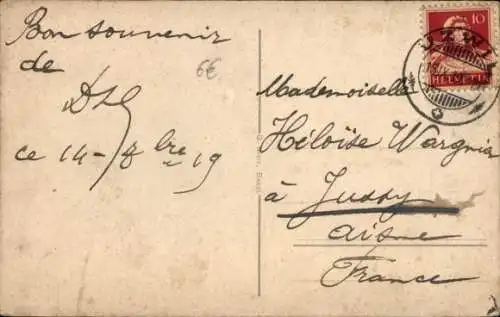 Bon souvenir
de
ce 14-8bre 19
6€
10
HELVETIA
Mademoiselle
Héloïse Wargnier
à Jussy
Aisne
France